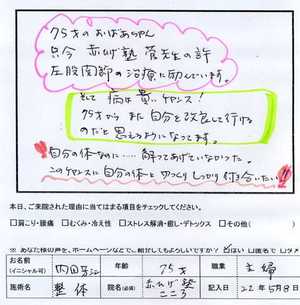 75才のおばあちゃん
只今 赤ひげ塾 菅先生の許
左股関節の治療に励んでいます。
そして 病は貴いチャンス!
75才から また 自分を改良して行ける
のだと 思えるようになってます。
自分の体なのに……解ってあげていなかった。
このチャンスに自分の体と ゆっくり しっかり 付き合いたい!!
本日、ご来院された理由に当てはまる項目をチェックしてください。
□肩こり・腰痛 □むくみ・冷え性 □ストレス解消・癒し・デトックス □その他(
※ あなた様の声を、ホームページなどでご紹介してもよろしいですか?
お名前 (イニシャル可) 年齢 75才 職業 主婦
施術名 整体 院名(必須) 赤ひげ塾 こころ 記入日 22年5月8日